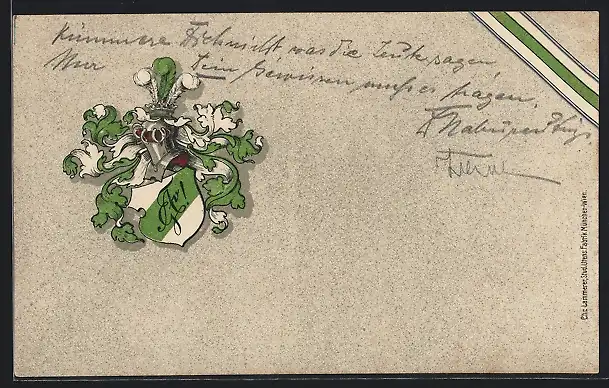 Kümmere Dich nicht was die Leute sagen
Nur Dein Gewissen muss es tragen.
Chr. Lammerer, Stud. Utens. Fabrik München-Wien.